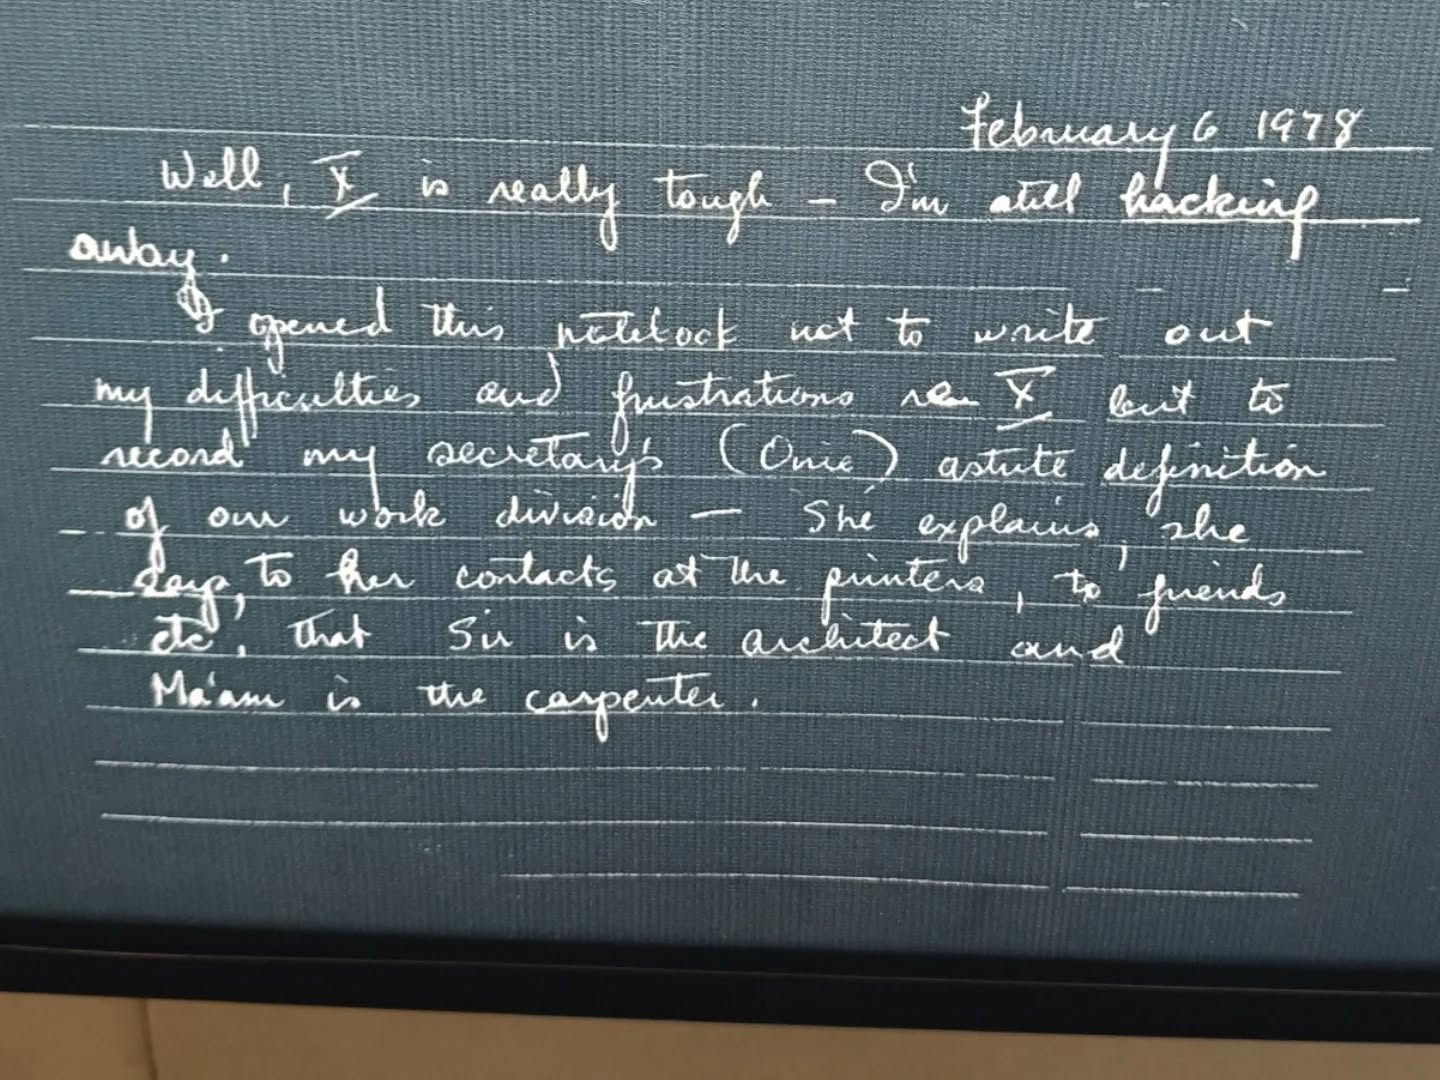 February 6 1978
Well, X is really tough – I'm still hacking
away.
I opened this notebook not to write out
my difficulties and frustrations re X but to
record my secretary's (Onie) astute definition
of our work division — She explains, she
says, to her contacts at the printers, to friends
etc, that Sir is the architect and
Ma'am is the carpenter.